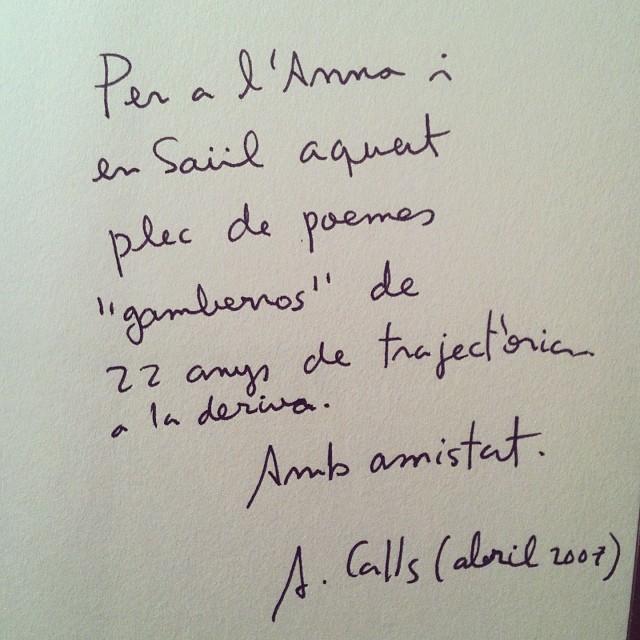 Per a l'Anna i
en Saül aquest
plec de poemes
"gamberros" de
22 anys de trajectòria
a la deriva.
Amb amistat.
A. Calls (abril 2007)